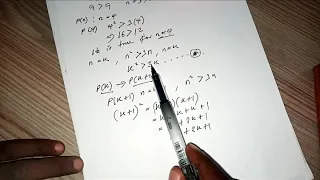 9 > 9
P(n) : n = 4
P(4) 4² > 3(4)
→ 16 > 12
It is true for n=4
n = k, n² > 3n, n=k
k² > 3k ...... *
P(k) → P(k+
P(k+1) n = k n² > 3n
(k+1)² = (k+1)(k+1)
= k + 1
= + 2k + 1
+ 2k + 1